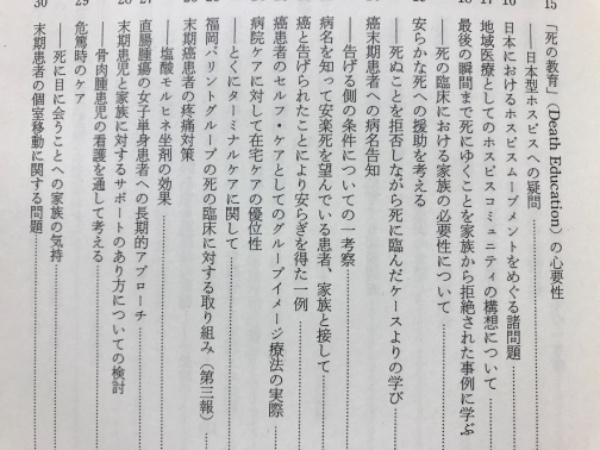 15 「死の教育」(Death Education)の必要性
――日本型ホスピスへの疑問
16 日本におけるホスピスムーブメントをめぐる諸問題
17 地域医療としてのホスピスコミュニティの構想について
18 最後の瞬間まで死にゆくことを家族から拒絶された事例に学ぶ
――死の臨床における家族の必要性について
安らかな死への援助を考える
――死ぬことを拒否しながら死に臨んだケースよりの学び
癌末期患者への病名告知
――告げる側の条件についての一考察
病名を知って安楽死を望んでいる患者、家族と接して
癌と告げられたことにより安らぎを得た一例
癌患者のセルフ・ケアとしてのグループイメージ療法の実際
病院ケアに対して在宅ケアの優位性
――とくにターミナルケアに関して
福岡バリントグループの死の臨床に対する取り組み(第三報)
末期癌患者の疼痛対策
――塩酸モルヒネ坐剤の効果
27 直腸腫瘍の女子単身患者への長期的アプローチ
28 末期患児と家族に対するサポートのあり方についての検討
――骨肉腫患児の看護を通して考える
29 危篤時のケア
――死に目に会うことへの家族の気持
30 末期患者の個室移動に関する問題